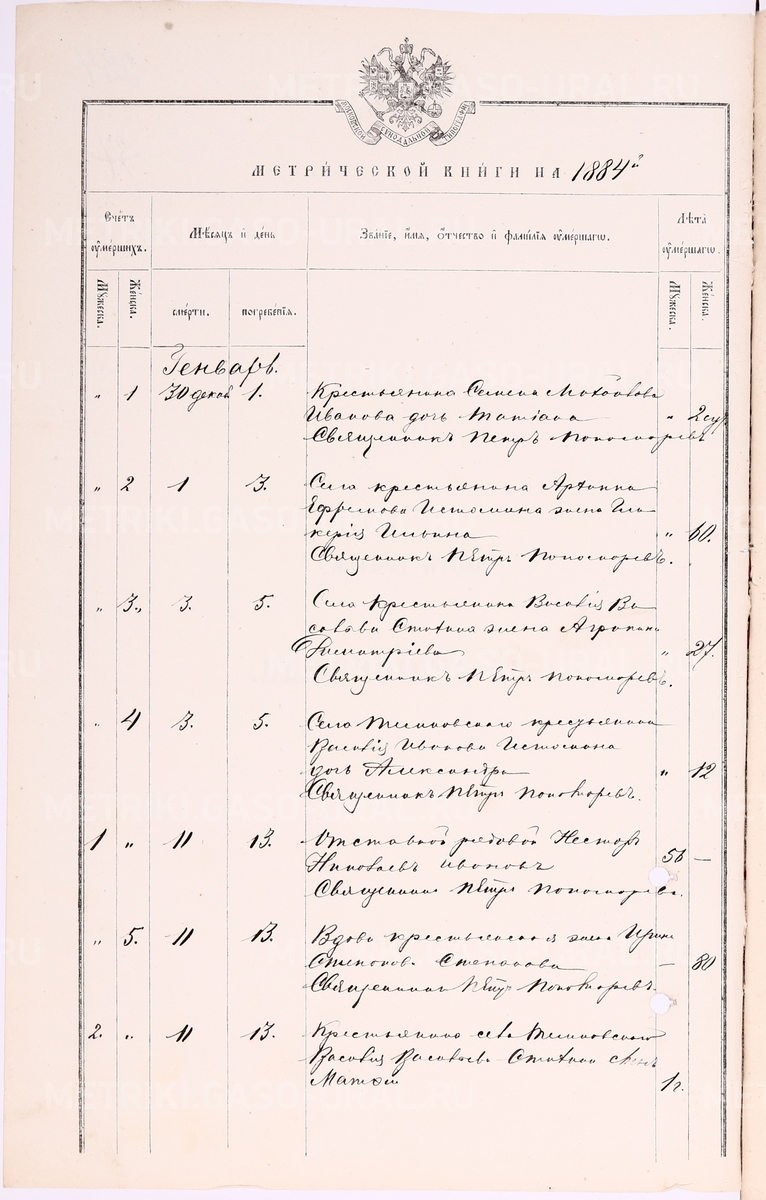 МЕТРИ́ЧЕСКОЙ КНИ́ГИ НА 1884й
Счётъ оуме́ршихъ.
Мѣ́сяцъ и де́нь
Зва́нїе, и́мя, о́тчество и фами́лїя оуме́ршагѡ.
Лѣта̀ оуме́ршагѡ.
Мꙋ́жеска.
Же́нска.
сме́рти.
погребе́нїя.
Мꙋ́жеска.
Же́нска.
Генварь.
" 1 30 декаб 1. Крестьянина Семена
Иванова дочь Татiана " 2
Священникъ Петръ Пономоревъ
" 2 1 3. Села крестьянина Архиппа
Ефремова Истомина жена Гли-
керiя Ильина " 60.
Священникъ Петръ Пономоревъ.
" 3., 3. 5. Села крестьянина Василiя Ва-
сильева жена Агрипина
Димитрiева " 27.
Священникъ Петръ Пономоревъ.
" 4 3. 5. Села крестьянина
Василiя Иванова Истомина
дочь Александра " 12
Священникъ Петръ Пономоревъ.
1 " 11 13. Отставной рядовой Несторъ
Николаевъ Ивановъ 56 —
Священникъ Петръ Пономоревъ.
" 5. 11 13. Вдова крестьянская жена Ирина
Степанова Степанова — 80
Священникъ Петръ Пономоревъ.
2. " 11 13. Крестьянина села
Василiя Васильева сынъ
1 г.